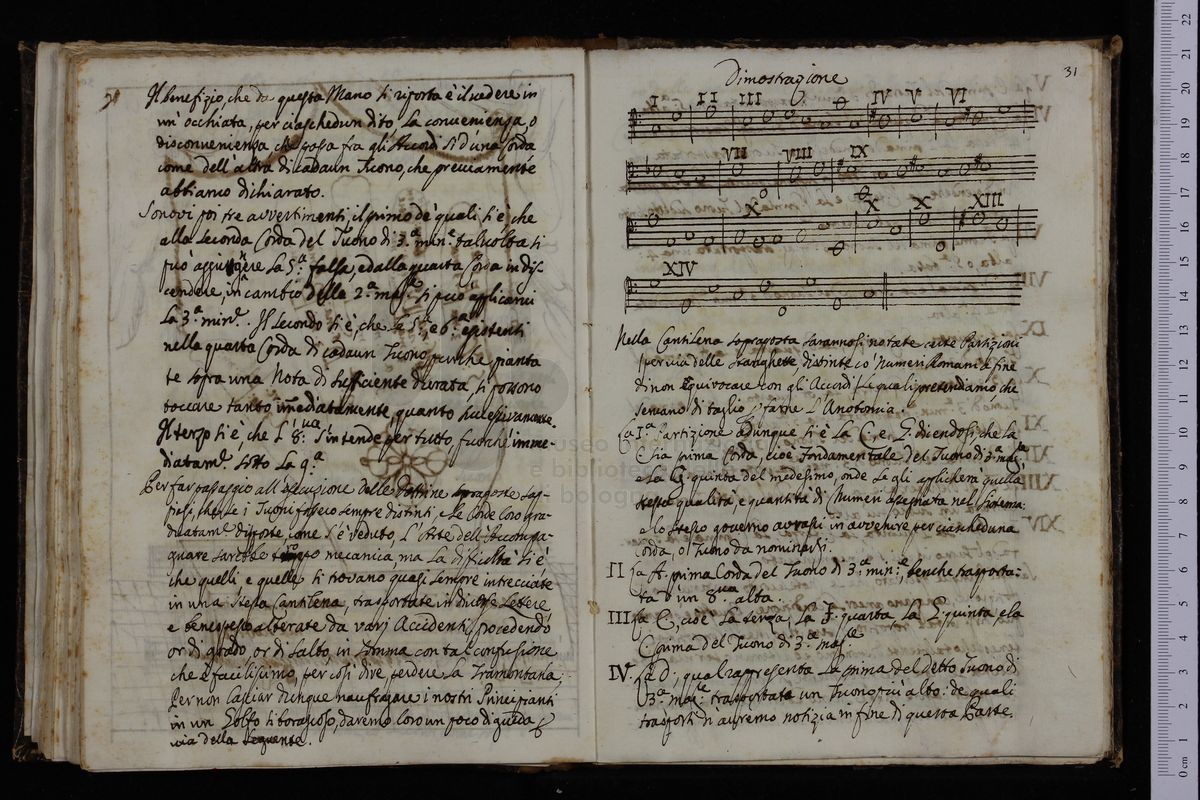 Il benefizio, che da questa Mano si riporta è il vedere in
un' occhiata, per ciaschedun dito la convenienza, o
disconvenienza che passa fra gli Accordi sì d'una Corda
come dell' altra di cadaun Tuono, che previamente
abbiamo dichiarato.
Sonovi poi tre avvertimenti, il primo de' quali si è, che
alla seconda Corda del Tuono di 3.ª min.e talvolta si
può aggiugnere la 5.ª falsa, ed alla quarta Corda in dis-
cendere, in cambio della 2.ª mag.e si può applicarvi
la 3.ª min.e. Il secondo si è, che le 5.ª, e 6.ª esistenti
nella quarta Corda di cadaun Tuono, purche pianta
te sopra una Nota di sufficiente durata, si possono
toccare tanto immediatamente, quanto successivamente.
Il terzo si è, che l' 8.va s'intende per tutto fuorchè imme-
diatam.e sotto la 9.ª
Per far passaggio all' esecuzione delle Dottrine sopraposte sap-
piasi, che se i Tuoni fossero sempre distinti, e le Corde loro gra-
duatam.e disposte, come s'è veduto, L' Arte dell' Accompa-
gnare sarebbe mecanica, ma la difficultà si è
che quelli e quelle si trovano quasi sempre intrecciate
in una stessa Cantilena, trasportate in diverse Lettere
e benespesso alterate da varj Accidenti, procedendo
or di grado, or di salto, in somma con tal confusione
che è facilissimo, per così dire, perdere la Tramontana;
Per non lasciar dunque naufragare i nostri Principianti
in un Golfo sì borascoso, daremo loro un poco di guida
via della seguente.
31
Dimostrazione
I II III IV V VI
VII VIII IX
X X X XIII
XIV
Nella Cantilena sopraposta sarannosi notate certe Partizioni
per via delle stanghette, distinte co' Numeri Romani a fine
di non equivocare con gli Accordi, le quali pretendiamo, che
servano di taglio p farne l'Anotomia.
La I.ª Partizione adunque si è La C, e G. dicendosi, che la
C sia prima Corda, cioè fondamentale del Tuono di 3.ª mag.re
e la G. quinta del medesimo, onde se gli applicherà quella
stessa qualità, e quantità di Numeri assegnata nel Sistema:
e lo stesso governo avrassi in avvenire per ciascheduna
Corda, o Tuono da nominarsi.
II La A. prima Corda del Tuono di 3.ª min.e, benche trasporta-
ta un' 8.va alta.
III La E, cioè La terza, la F. quarta, La G quinta, e la
C prima del Tuono di 3.ª mag.re
IV. La D. qual rappresenta La prima del detto Tuono di
3.ª mag.re trasportata un Tuono più alto: de quali
trasporti n' avremo notizia in fine di questa Parte.